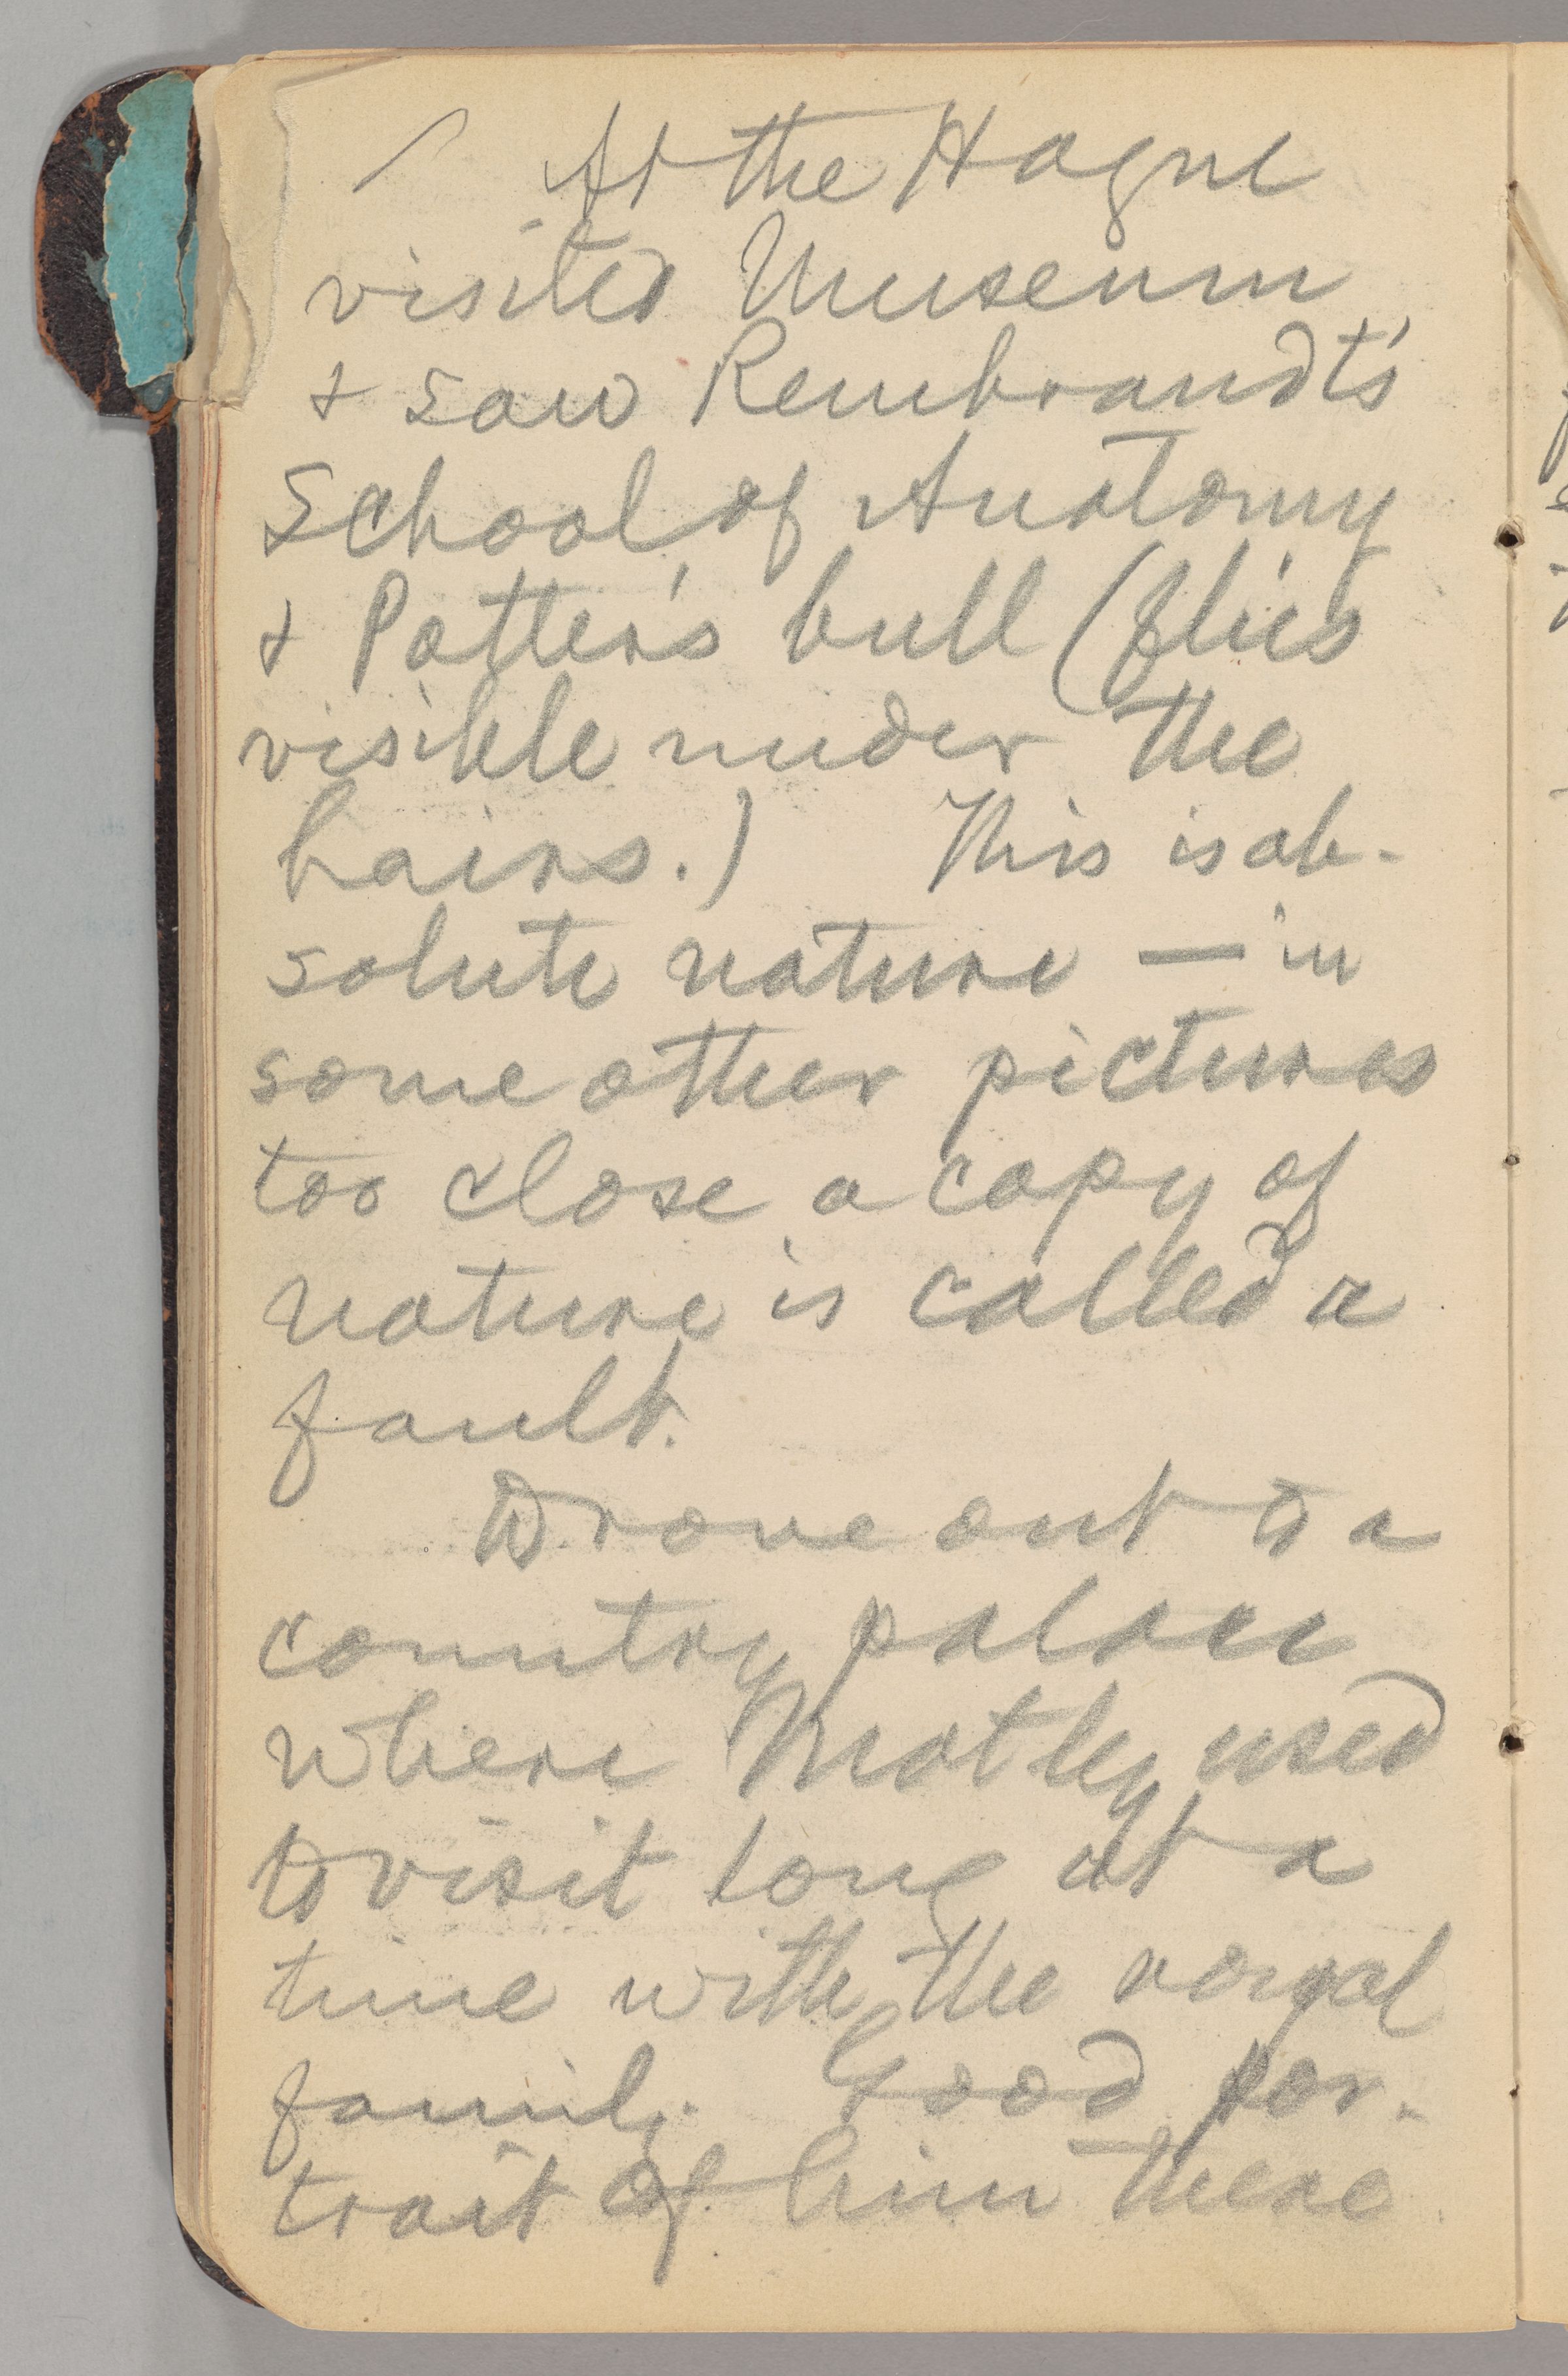 At the Hague
visited Museum
& saw Rembrandt's
School of Anatomy
& Potter's bull (flies
visible under the
hairs.) This is ab-
solute nature — in
some other pictures
too close a copy of
nature is called a
fault.
Drove out to a
country palace
where Motley used
to visit long at a
time with the royal
family. Good por-
trait of him there